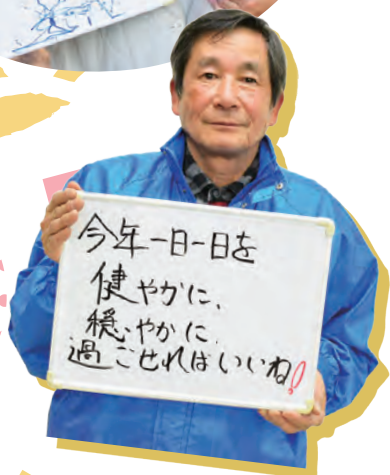 今年一日一日を
健やかに、
穏やかに、
過ごせればいいね!